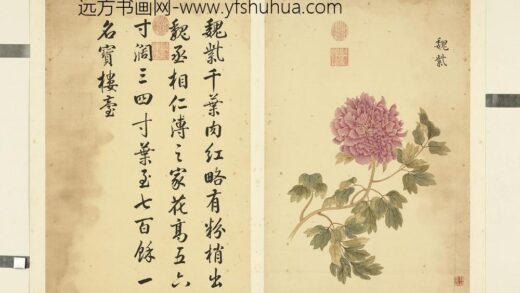 远方书画网-www.yfshuhua.com
魏紫
魏紫千葉肉紅略有粉梢出
魏丞相仁溥之家花高五六
寸濶三四寸葉至七百餘一
名寳樓臺